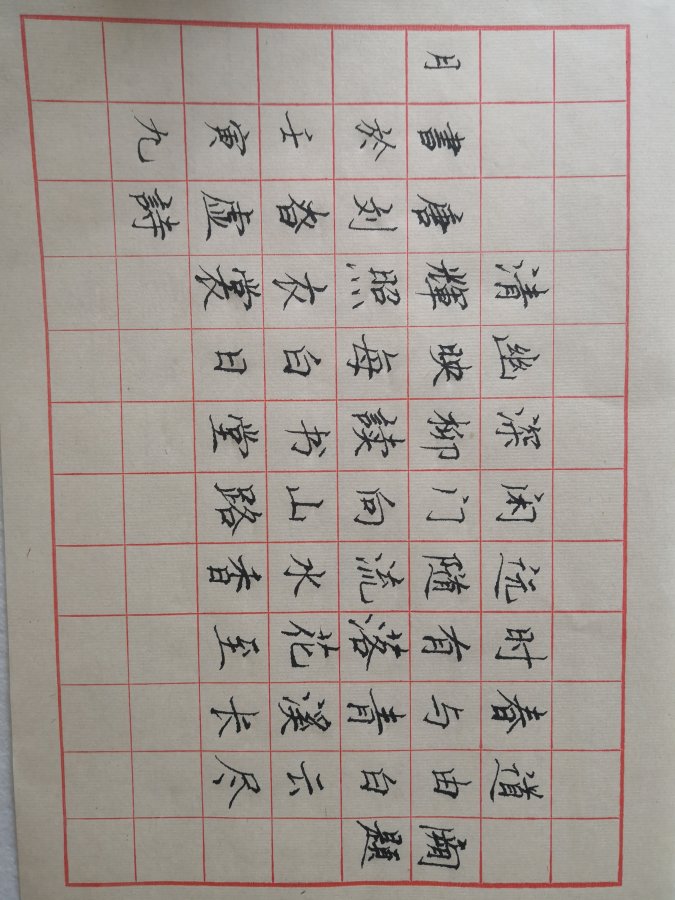 闕題
道由白云尽
春与青溪长
时有落花至
远随流水香
闲门向山路
深柳讀书堂
幽映每白日
清輝照衣裳
唐刘眘虚詩
書於壬寅九
月